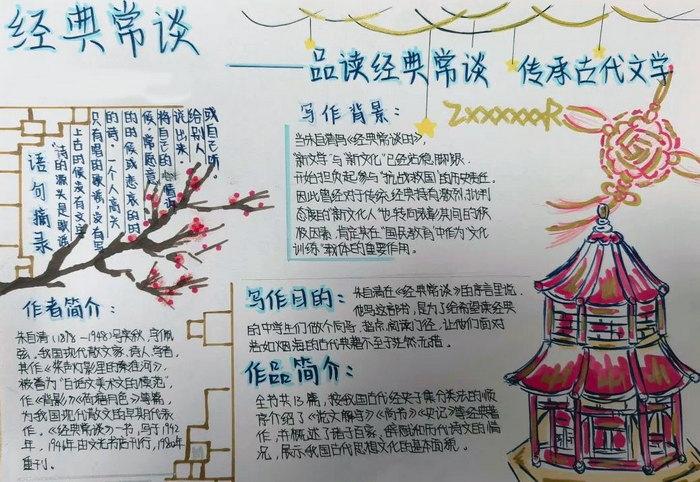 经典常谈
——品读经典常谈 传承古代文学
ZxxxxxxR
语句摘录
"诗的源头是歌谣
上古的时候,没有文字,
只有唱的歌谣,没有写
的诗。一个人高兴
的时候或悲哀的时
候,常愿意
将自己的
说出来
给别人
或自己听
写作背景:
当朱自清写《经典常谈的》,
"新文学"与"新文化"已经站稳脚跟,
开始担负起参与"抗战救国"的历史责任。
因此曾经对于传统经典持有激烈批判
态度的"新文化人"也转向
极因素,肯定其在"国民教育"中作为"文化
训练"载体的重要作用。
作者简介:
朱自清(1898-1948)号实秋,字佩
弦。我国现代散文家、诗人、学者。
其作《桨声灯影里的秦淮河》,
被誉为"白话文美术文的模范"。
作《背影》《荷塘月色》等篇,
为我国现代散文的早期代表
作,《经典常谈》一书,写于1942
年,1946年由文光书店刊行,1980年
重刊。
写作目的:朱自清在《经典常谈》的序言里说,
他写这部书,是为了给希望读经典
的中学生们做个向导,指示阅读门径,让他们面对
浩如烟海的古代典籍不至于茫然无措。
作品简介:
全书共13篇,按我国古代经史子集分类法的顺
序介绍了《说文解字》《尚书》《史记》等经典著
作,并概述了诸子百家、辞赋和历代诗文的情
况,展示我国古代思想文化的基本面貌。